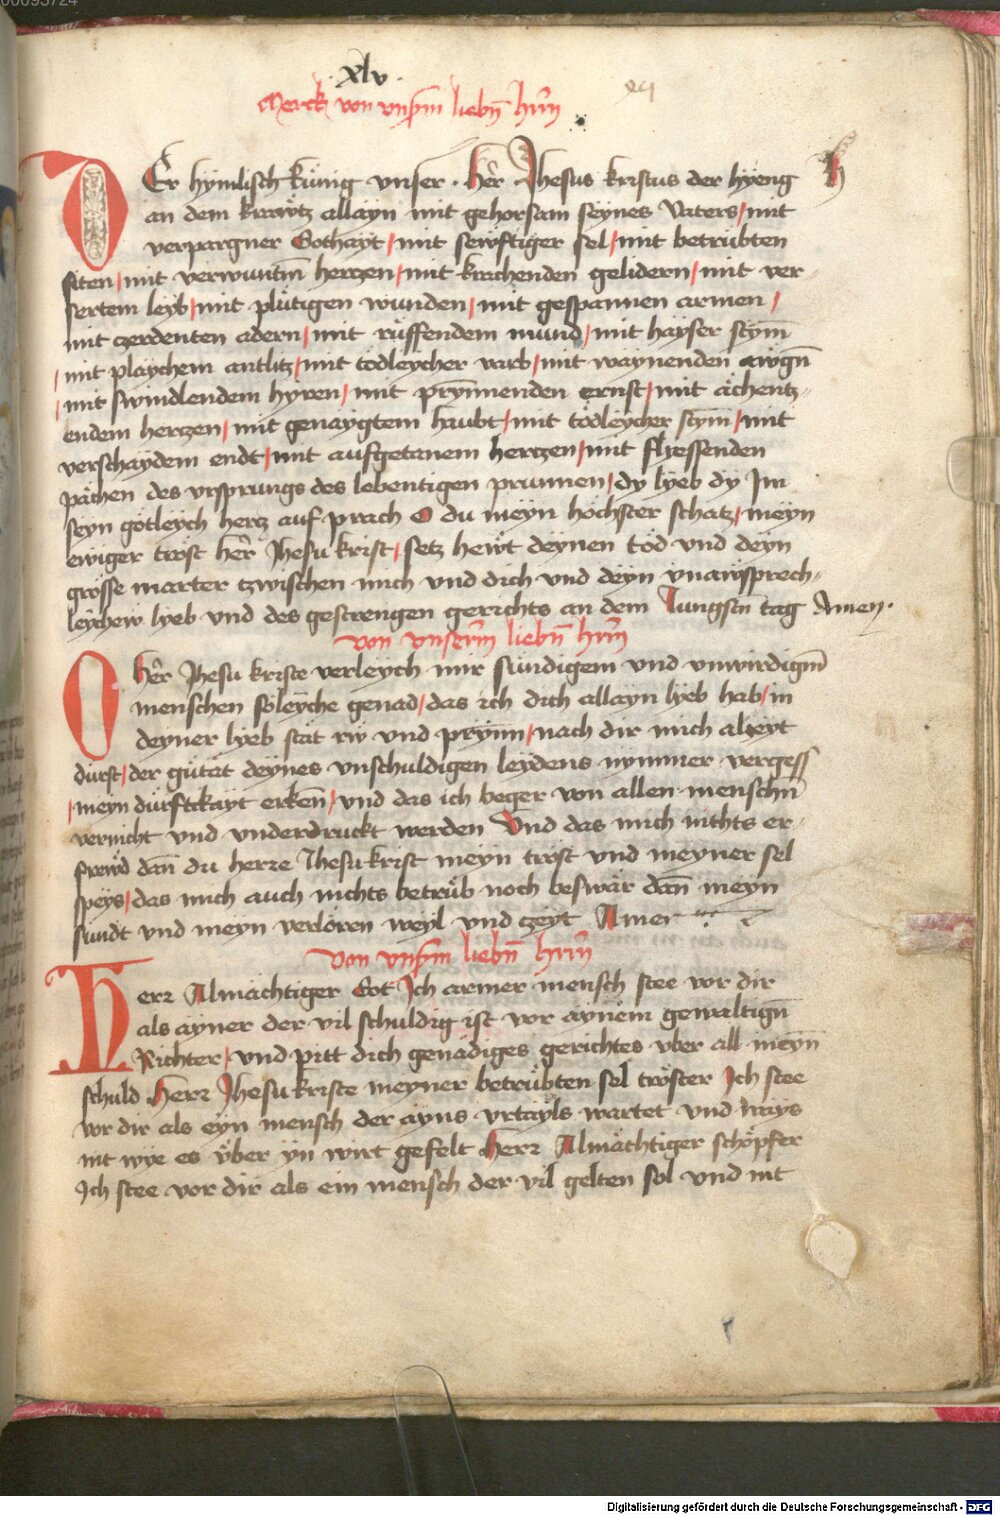 00093724
.xlv.
Merck von vnsm̄ liebn̄ hrn̄
DEr hÿmlisch künig vnser . her̄ Jhesus kristus der hyeng
an dem krawtz allayn mit gehorsam seÿnes Vaters / mit
verpargner Gothayt / mit sewftiger sel / mit betrübten
siten / mit verwuntm̄ hertzen / mit krachenden gelidern / mit ver-
sertem leÿb / mit plütigen wunden / mit gespannen armen /
mit czerdenten adern / mit rüffendem mund / mit hayser stÿm̄
/ mit playchem antlitz / mit todleycher varb / mit waynenden awgn̄
/ mit swindlendem hÿren / mit prÿnnenden ernst / mit ächentz-
endem hertzen / mit genaygtem haubt / mit tödleycher stym̄ / mit
verschaydem endt / mit aufgetanem hertzen / mit flyessenden
pächen des vrsprungs des lebentigen prunnen / dy lÿeb dÿ Im
seyn götleÿch hertz auf prach O du meÿn höchster schatz / meÿn
ewiger tröst her̄ Jhesu krist / setz hewt deÿnen töd vnd deÿn
grösse marter tzwischen mich vnd dich vnd deÿn vnawsprech-
leÿchew lÿeb vnd des gestrengen gerichts an dem Jungstn̄ tag Amen .
von vnserm̄ liebn̄ hrn̄
O her̄ Jhesu kriste verleÿch mir sündigem vnd vnwirdigm̄
menschen söleÿche genad / das ich dich allaÿn lÿeb hab / in
deyner lÿeb stät rw vnd prÿnn / nach dir mich alzeyt
dürst / der gütät deÿnes vnschuldigen leÿdens nymmer vergess
/ meyn dürftikayt erken̄ / vnd das ich beger von allen menschn̄
vernicht vnd vnderdruckt werden Vnd das mich nichts er-
frewd dan̄ du herre Jhesu krist meÿn tröst vnd meyner sel
speÿs / das mich auch nichts betrüb noch beswär dan̄ meyn
sündt vnd meyn verloren weÿl vnd czeÿt Amen
von vnsm̄ liebn̄ hrn̄
Herr Almächtiger Got Ich armer mensch stee vor dir
als aÿner der vil schuldig ist vor aÿnem gewaltign̄
Richter / vnd pitt dich genädiges gerichtes vber all meÿn
schuld Herr Jhesu kriste meyner betrübten sel tröster Ich stee
vor dir als eyn mensch der ayns vrtayls wartet vnd ways
nit wÿe es vber ÿn wirt gefelt Herr Almächtiger schöpfer
Ich stee vor dir als ein mensch der vil gelten sol vnd nit
Digitalisierung gefördert durch die Deutsche Forschungsgemeinschaft - DFG